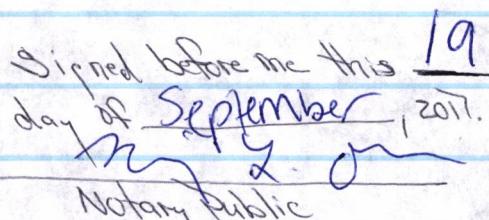 Signed before me this 19
day of September, 2017.
Notary Public